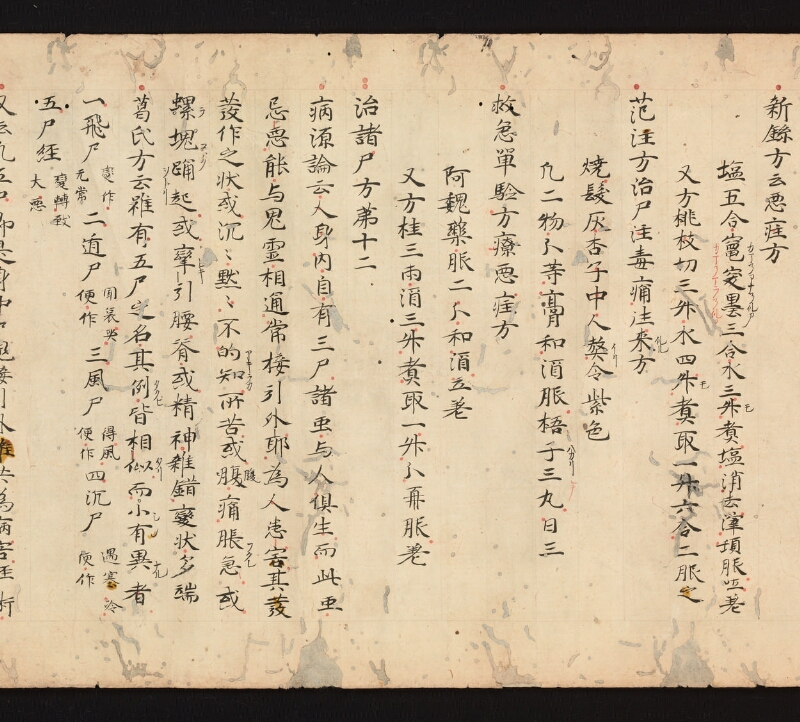 新録方云悪疰方
塩五合 三合水三升煮塩消去滓頓服
又方桃枝切三升水四升煮取一升六合二服之
范汪方治尸注毒痛注来方
焼髪灰杏子中人熬令紫色
凡二物分等膏和酒服梧子三丸日三
救急單驗方療悪疰方
阿魏藥服二分和酒立差
又方桂三兩酒三升煮取一升分再服差
治諸尸方第十二
病源論云人身内自有三尸諸虫与人俱生而此虫
忌悪能与鬼霊相通常接引外耶為人患害其發
發作之状或沉々黙々不的知所苦或腹痛脹急或
螺塊踊起或攣引腰脊或精神雜錯變状多端
葛氏方云雖有五尸之名其例皆相似而小有異者
一飛尸 二遁尸 便作 三風尸 得風便作 四沉尸 遇寒冷便作
五尸経 大悪